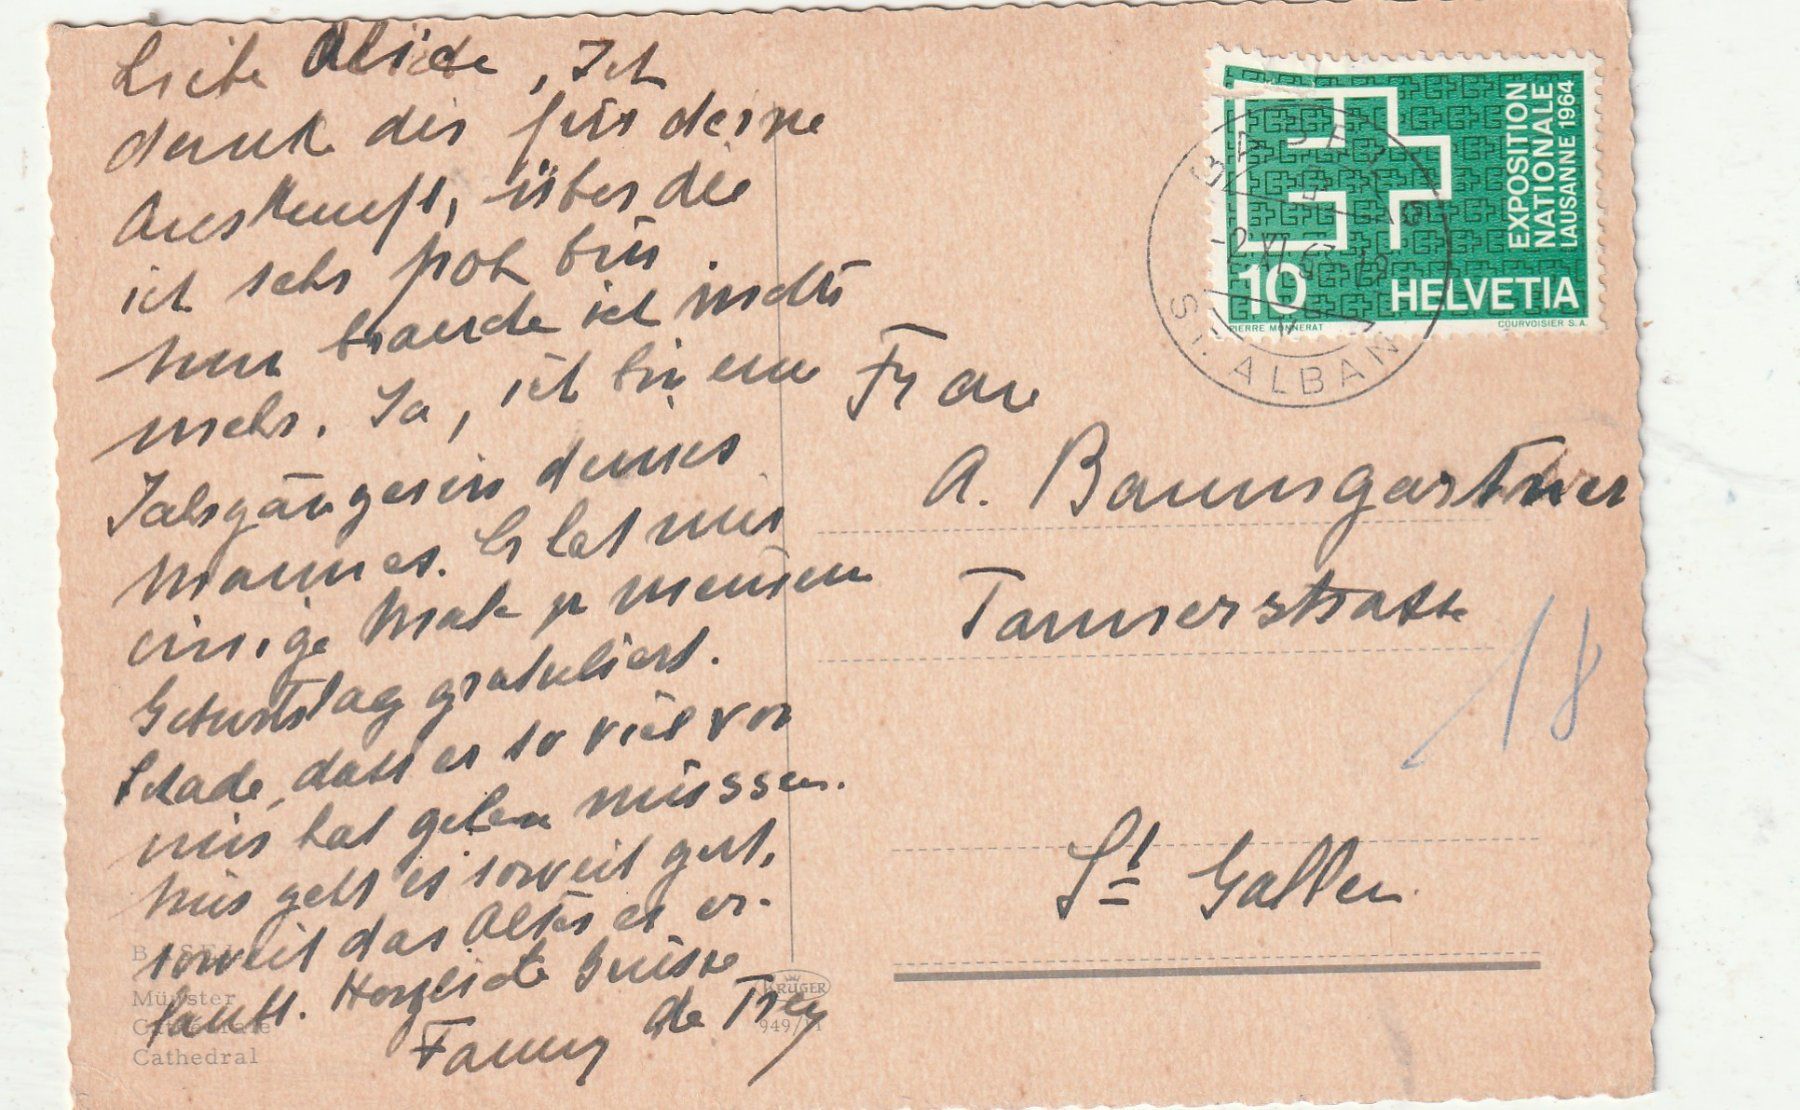 Liebe Alice, Ich
dank dir für deine
Auskunft, über die
ich sehr froh bin
nun brauche ich nichts
mehr. Ja, ich bin eine
Jahrgängerin deines
Mannes. Er hat mir
einige Male zu meinem
Geburtstag gratuliert.
Schade, dass er so viel vor
mir hat gehen müssen.
Mir geht es soweit gut,
soweit das Alter es er-
laubt. Herzliche Grüsse
Fanny de Trey
EXPOSITION
NATIONALE
LAUSANNE 1964
10 HELVETIA
PIERRE MONNERAT COURVOISIER S.A.
BASEL
-2.XI.63
ST. ALBAN
Frau
A. Baumgartner
Tannerstrasse
18
St Gallen
BASEL
Münster
Cathédrale
Cathedral
KRÜGER
949/11